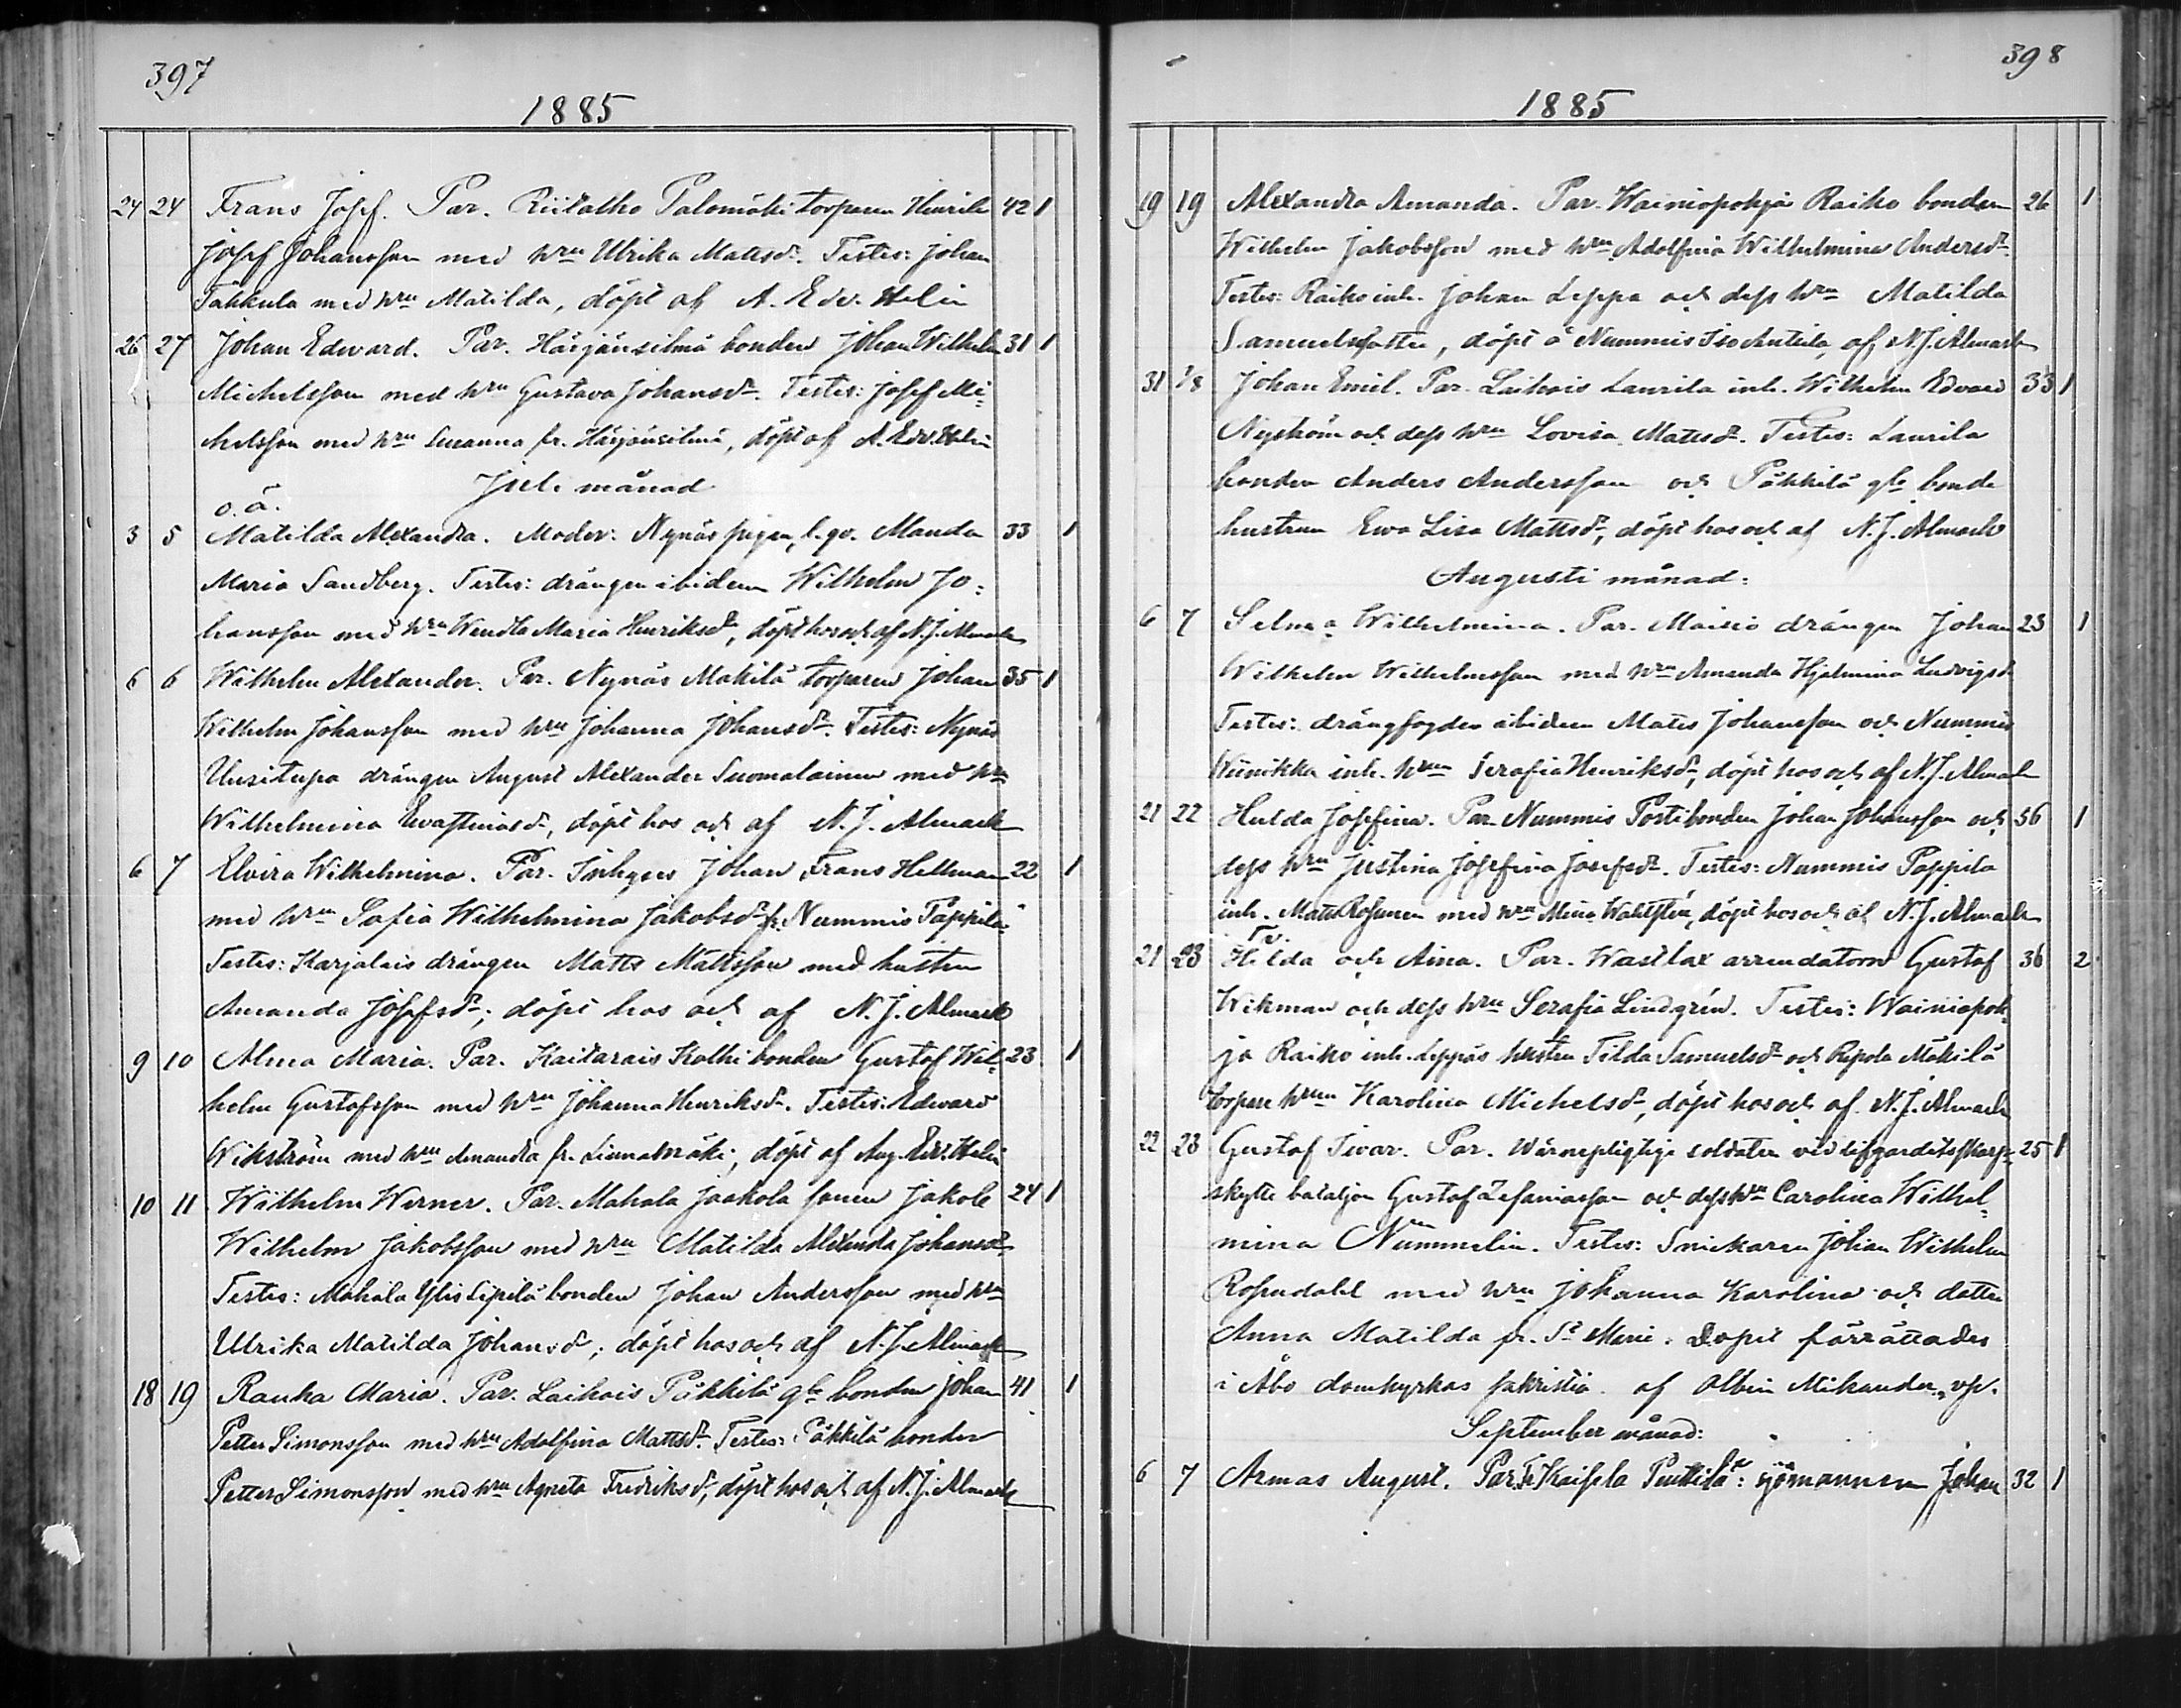 397
1885
24 24 Frans Josef. Par. Riitalho Palomäki torparen Henrik 42 1
Josef Johansson med hru Ulrika Mattsdr. Testes: Johan
Täkkula med hru Matilda, döpt af A. Edv. Helin
26 27 Johan Edward. Par. Härjänsilmä bonden Johan Wilhelm 31 1
Michelsson med hru Gustava Johansdr. Testes: Josef Mi-
chelsson med hru Susanna fr. Härjänsilmä, döpt af A. Edv. Helin
Juli månad
o.ä.
3 5 Matilda Alexandra. Moder: Nynäs pigan, l. qv. Manda 33 1
Maria Sandberg. Testes: drängen ibidem Wilhelm Jo-
hansson med hru Wendla Maria Henriksdr, döpt hos och af N. J. Almark
6 6 Wilhelm Alexander. Par. Nynäs Mäkilä torparen Johan 35 1
Wilhelm Johansson med hru Johanna Johansdr. Testes: Nynäs
Uusitupa drängen August Alexander Suomalainen med hru
Wilhelmina dr, döpt hos och af N. J. Almark
6 7 Elvira Wilhelmina. Par. Inhyses Johan Frans Hellman 22 1
med hru Sofia Wilhelmina Jakobsdr fr. Nummis Pappila
Testes: Karjalais drängen Matts Mattsson med hustru
Amanda Josefsdr; döpt hos och af N. J. Almark
9 10 Alma Maria. Par. Kaitarais Kolki bonden Gustaf Wil- 23 1
helm Gustafsson med hru Johanna Henriksdr. Testes: Edward
Wikström med hru Amanda fr. Linnavuoäki, döpt af Aug. Edv. Helin
10 11 Wilhelm Werner. Par. Mahala Jaakola sonen Jakob 24 1
Wilhelm Jakobsson med hru Matilda Alexandra Johansdr
Testes: Mahala Ylis Sipilä bonden Johan Andersson med hru
Ulrika Matilda Johansdr; döpt hos och af N. J. Almark
18 19 Rauha Maria. Par. Laihois Päkkilä gle bonden Johan 41 1
Petter Simonsson med hru Adolfina Mattsdr. Testes: Päkkilä bonden
Petter Simonsson med hru Agneta Fredriksdr, döpt hos och af N. J. Almark
398
1885
19 19 Alexandra Amanda. Par. Wainiopohja Raiko bonden 26 1
Wilhelm Jakobsson med hru Adolfina Wilhelmina Andersdr.
Testes: Raiko inh. Johan Leppa och dess hru Matilda
Samuelsdotter, döpt å Nummis Iso Anttila, af N. J. Almark
31 1/8 Johan Emil. Par. Laihois Laurila inh. Wilhelm Edvard 33 1
Nyström och dess hru Lovisa Mattsdr. Testes: Laurila
bonden Anders Andersson och Päkkilä gle bonde
hustrun Ewa Lisa Mattsdr, döpt hos och af N. J. Almark
Augusti månad:
6 7 Selma Wilhelmina. Par. Maisio drängen Johan 23 1
Wilhelm Wilhelmsson med hru Amanda Hjelmina Ludvigsdr
Testes: drängfogden ibidem Matts Johansson och Nummis
inh. hrun Serafia Henriksdr, döpt hos och af N. J. Almark
21 22 Hulda Josefina. Par. Nummis Posti bonden Johan Johansson och 36 1
dess hru Justina Josefina Josefsdr. Testes: Nummis Pappila
inh. Matts Rosenen med hru Mina Wahlstén, döpt hos och af N. J. Almark
Tv.
21 23 Hilda och Aina. Par. Wästlax arrendatorn Gustaf 36 2
Wikman och dess hru Serafia Lindgrén. Testes: Wainiopoh-
ja Raiko inh. Leppäs hustru Tilda Samuelsdr och Ripola Mäkilä
torpare hrun Karolina Michelsdr, döpt hos och af N. J. Almark
22 23 Gustaf Iivar. Par. Wärnepligtige soldaten vid lifgardets skarp- 25 1
skytte bataljon Gustaf Zefaniasson och dess hru Carolina Wilhel-
mina Nummelin. Testes: Snickaren Johan Wilhelm
Rosendahl med hru Johanna Karolina och dotter
Anna Matilda fr. St Marie. Dopet förrättades
i Åbo domkyrkas sakristia af Albin Mikander, vp.
September månad:
6 7 Armas August. Par. Fr. Kaisela Puttila: sjömannen Johan 32 1